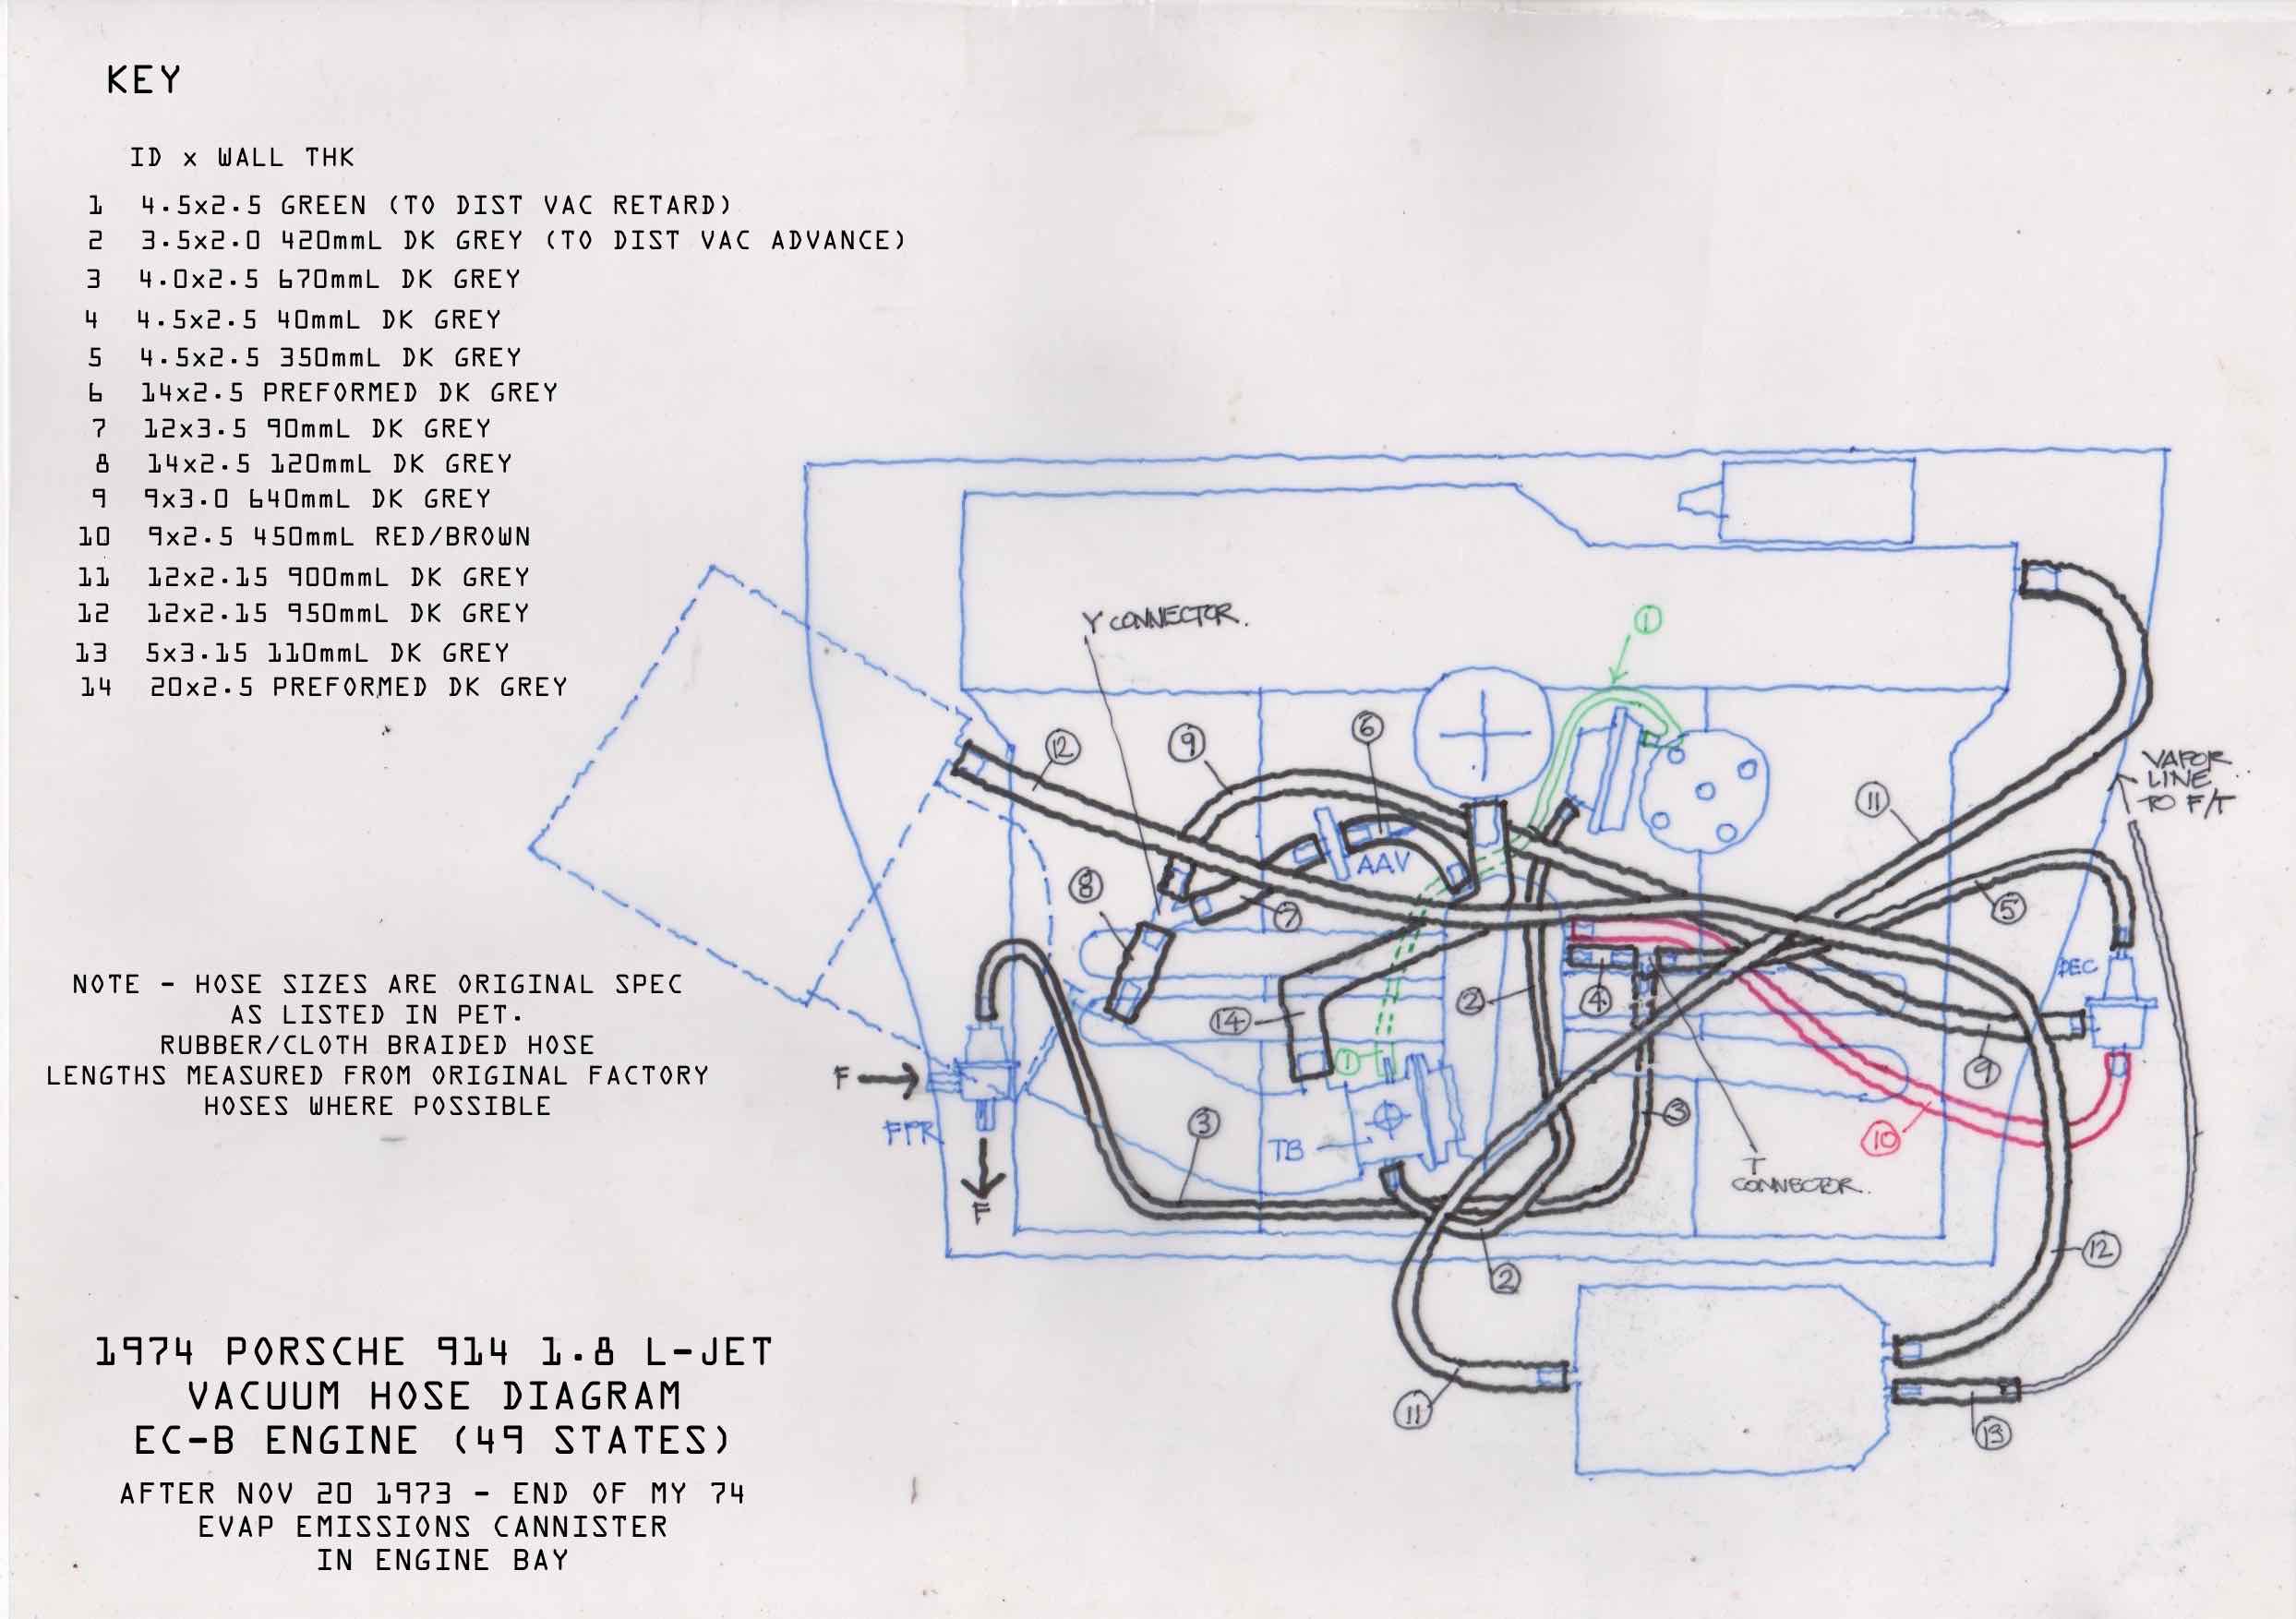 KEY
ID x WALL THK
1 4.5x2.5 GREEN (TO DIST VAC RETARD)
2 3.5x2.0 420mmL DK GREY (TO DIST VAC ADVANCE)
3 4.0x2.5 670mmL DK GREY
4 4.5x2.5 40mmL DK GREY
5 4.5x2.5 350mmL DK GREY
6 14x2.5 PREFORMED DK GREY
7 12x3.5 90mmL DK GREY
8 14x2.5 120mmL DK GREY
9 9x3.0 640mmL DK GREY
10 9x2.5 450mmL RED/BROWN
11 12x2.15 900mmL DK GREY
12 12x2.15 950mmL DK GREY
13 5x3.15 110mmL DK GREY
14 20x2.5 PREFORMED DK GREY
NOTE - HOSE SIZES ARE ORIGINAL SPEC
AS LISTED IN PET.
RUBBER/CLOTH BRAIDED HOSE
LENGTHS MEASURED FROM ORIGINAL FACTORY
HOSES WHERE POSSIBLE
1974 PORSCHE 914 1.8 L-JET
VACUUM HOSE DIAGRAM
EC-B ENGINE (49 STATES)
AFTER NOV 20 1973 - END OF MY 74
EVAP EMISSIONS CANNISTER
IN ENGINE BAY
Y CONNECTOR.
1
12
9
6
11
VAPOR
LINE
TO F/T
AAV
8
7
5
DEC
2
4
14
1
9
F
FPR
3
TB
3
10
T
CONNECTOR.
F
2
12
11
13